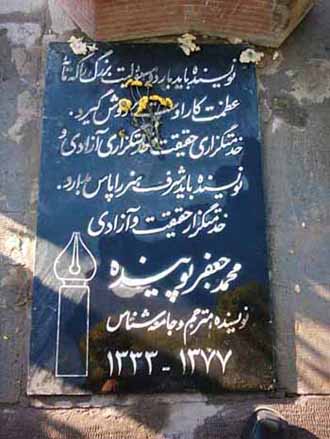 نویسنده باید بار دو مسئولیت بزرگ را که تا
عظمت کار اوست بر دوش گیرد.
خدمتگزاری حقیقت و خدمتگزاری آزادی و
نویسنده باید شرف هنر را پاس بدارد.
خدمتگزار حقیقت و آزادی
محمد جعفر پوینده
نویسنده مترجم و جامعه شناس
۱۳۳۳ - ۱۳۷۷